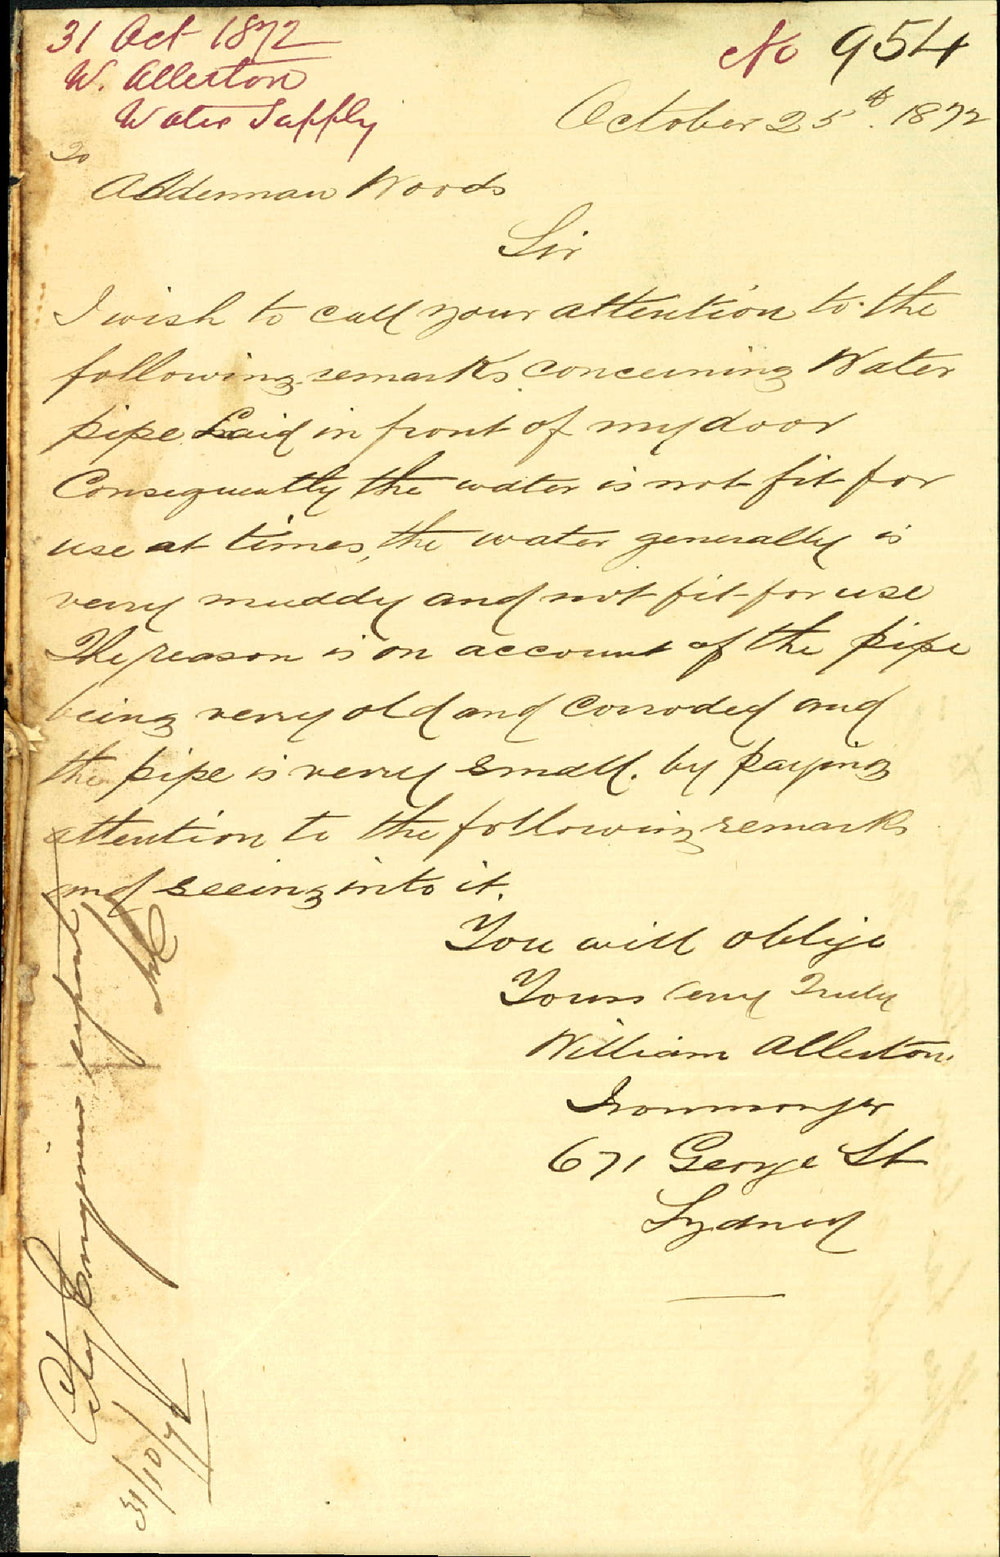 31 Oct 1872
W. Allerton
Water Supply
No 954
October 25th. 1872
To
Alderman Woods
Sir
I wish to call your attention to the
following remarks concerning Water
pipe Laid in front of my door
Consequently the water is not fit for
use at times, the water generally is
very muddy and not fit for use
The reason is on account of the pipe
being very old and Corroded and
the pipe is very small. by paying
attention to the following remarks
and seeing into it.
You will oblige
Yours very Truly
William Allerton
Ironmonger
671 George St
Sydney
City Engineer report
31/10/72